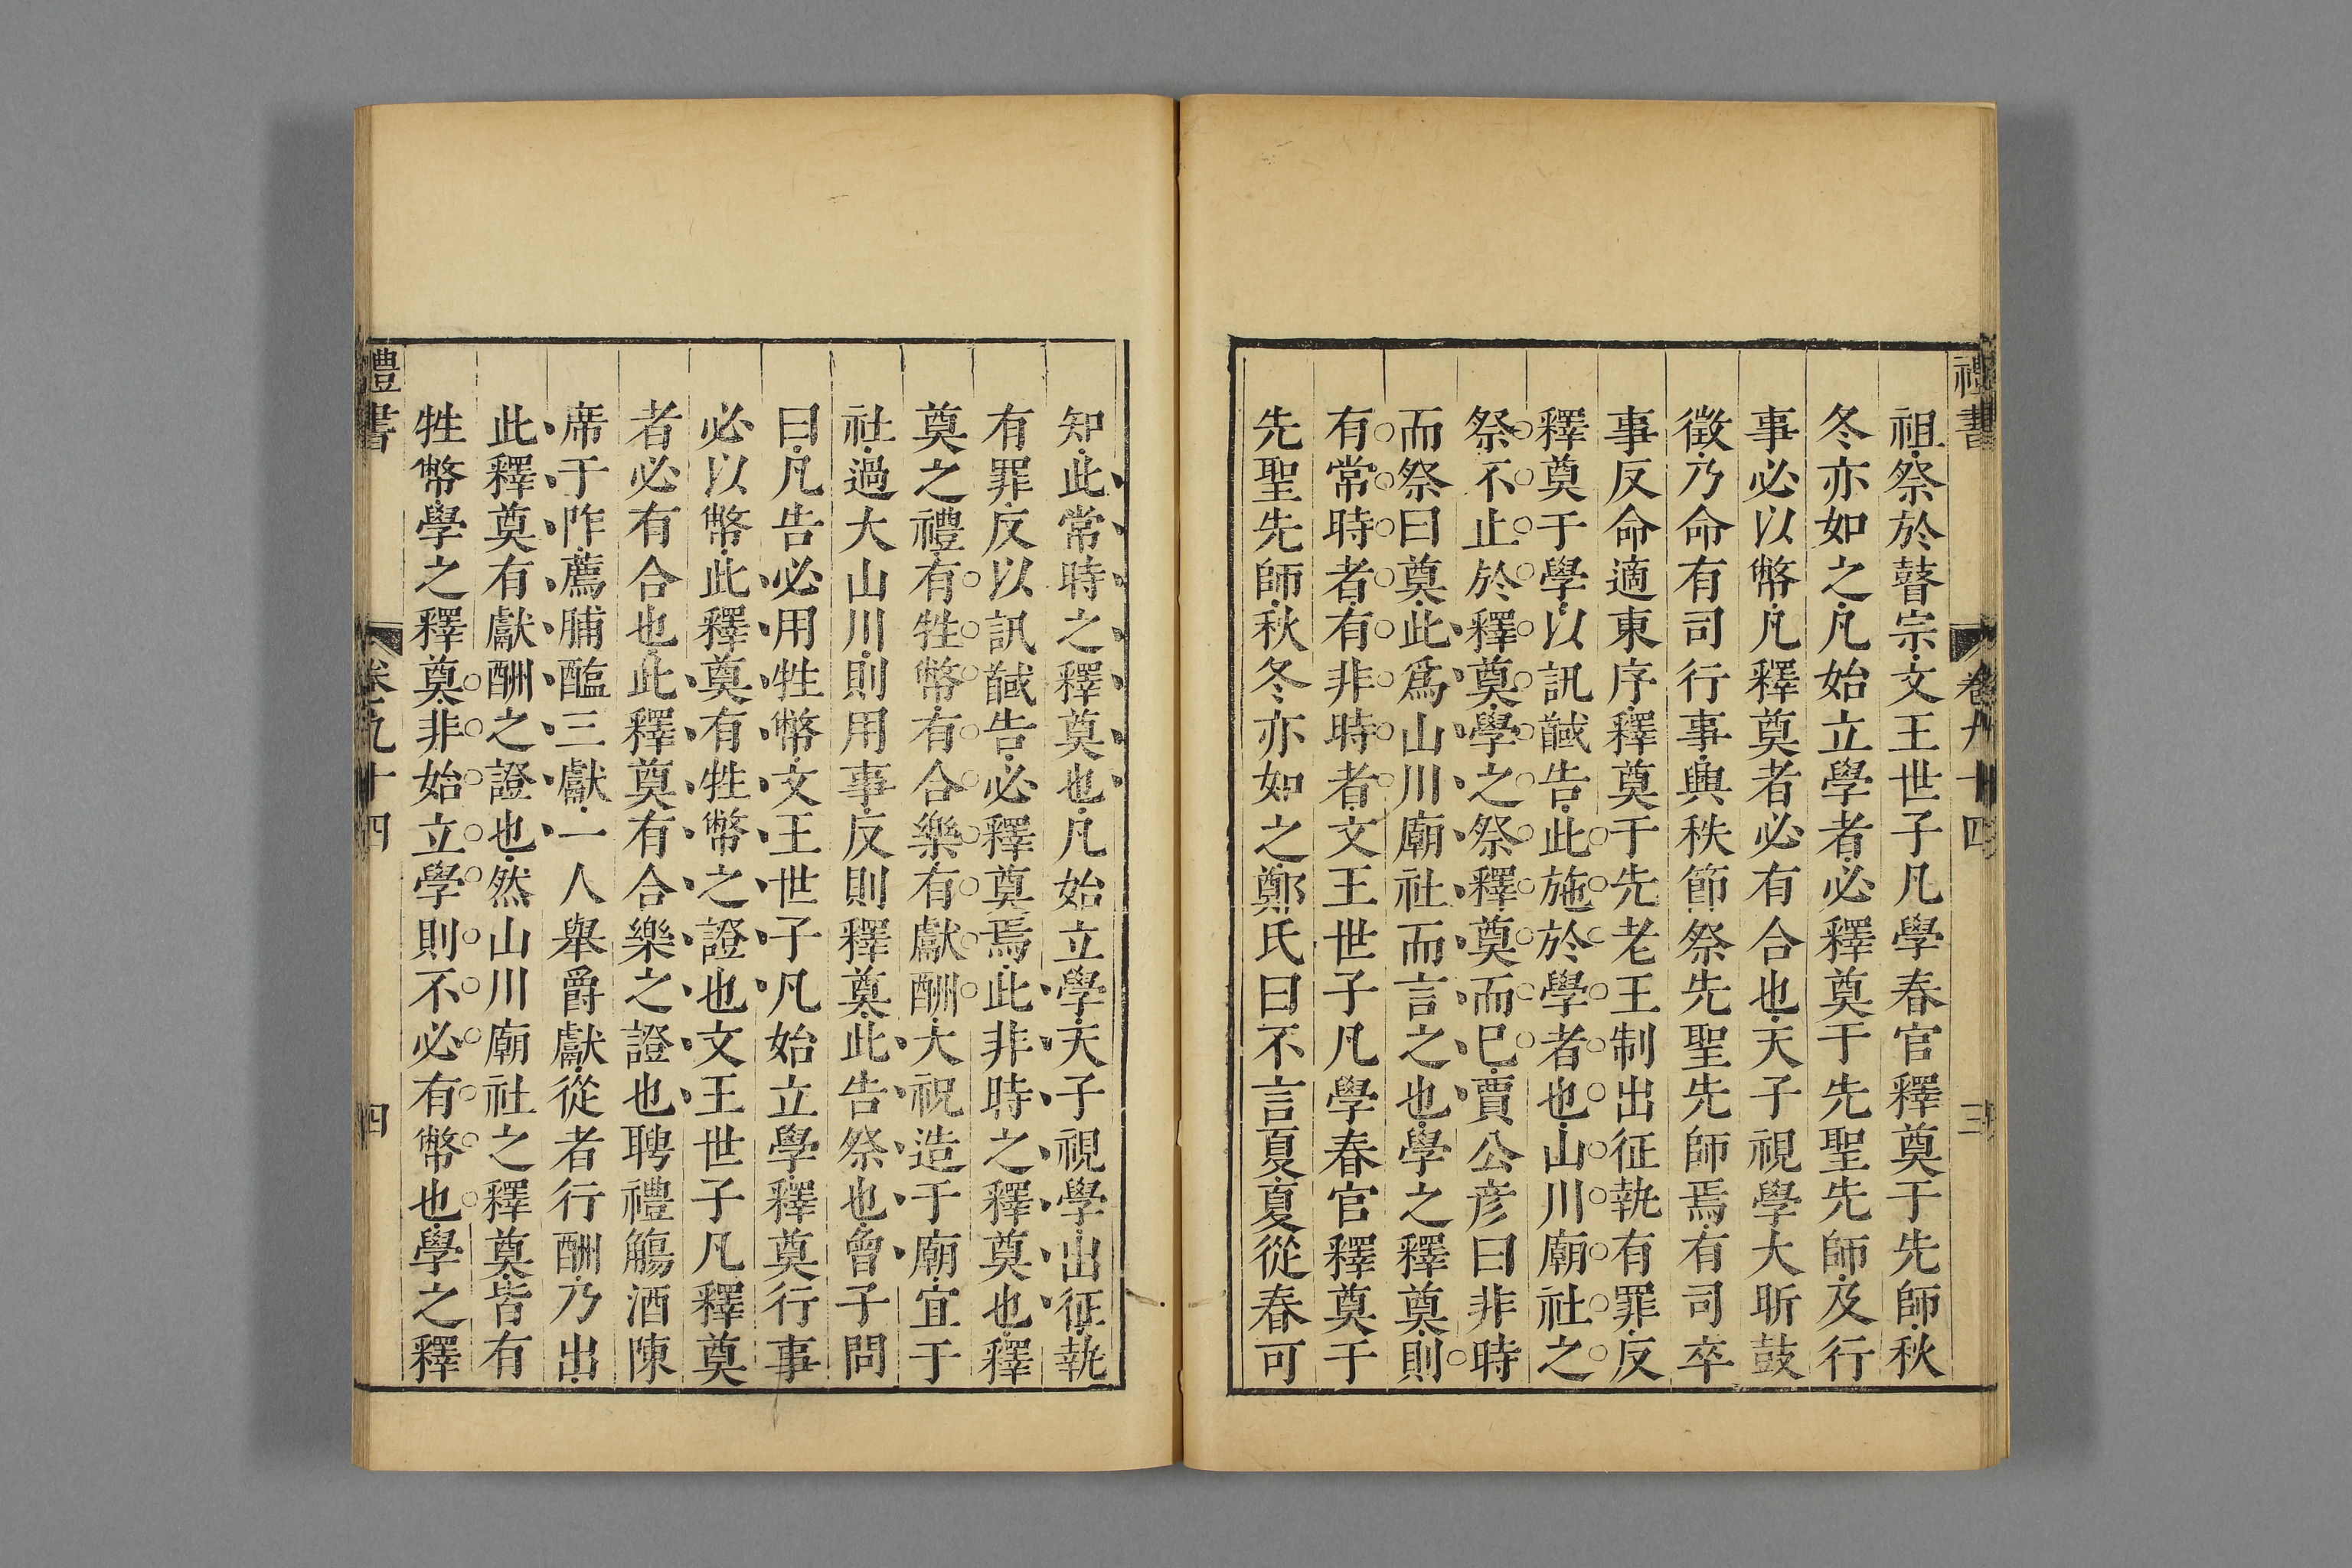 禮書 卷九十四 三
祖祭於瞽宗文王世子凡學春官釋奠于先師秋
冬亦如之凡始立學者必釋奠于先聖先師及行
事必以幣凡釋奠者必有合也天子視學大昕鼓
徵乃命有司行事興秩節祭先聖先師焉有司卒
事反命適東序釋奠于先老王制出征執有罪反
釋奠于學以訊馘告此施於學者也山川廟社之
祭不止於釋奠學之祭釋奠而已賈公彦曰非時
而祭曰奠此爲山川廟社而言之也學之釋奠則
有常時者有非時者文王世子凡學春官釋奠于
先聖先師秋冬亦如之鄭氏曰不言夏夏從春可
知此常時之釋奠也凡始立學天子視學出征執
有罪反以訊馘告必釋奠焉此非時之釋奠也釋
奠之禮有牲幣有合樂有獻酬大祝造于廟宜于
社過大山川則用事反則釋奠此告祭也曾子問
曰凡告必用牲幣文王世子凡始立學釋奠行事
必以幣此釋奠有牲幣之證也文王世子凡釋奠
者必有合也此釋奠有合樂之證也聘禮觴酒陳
席于阼薦脯醢三獻一人舉爵獻從者行酬乃出
此釋奠有獻酬之證也然山川廟社之釋奠皆有
牲幣學之釋奠非始立學則不必有幣也學之釋
禮書 卷九十四 四